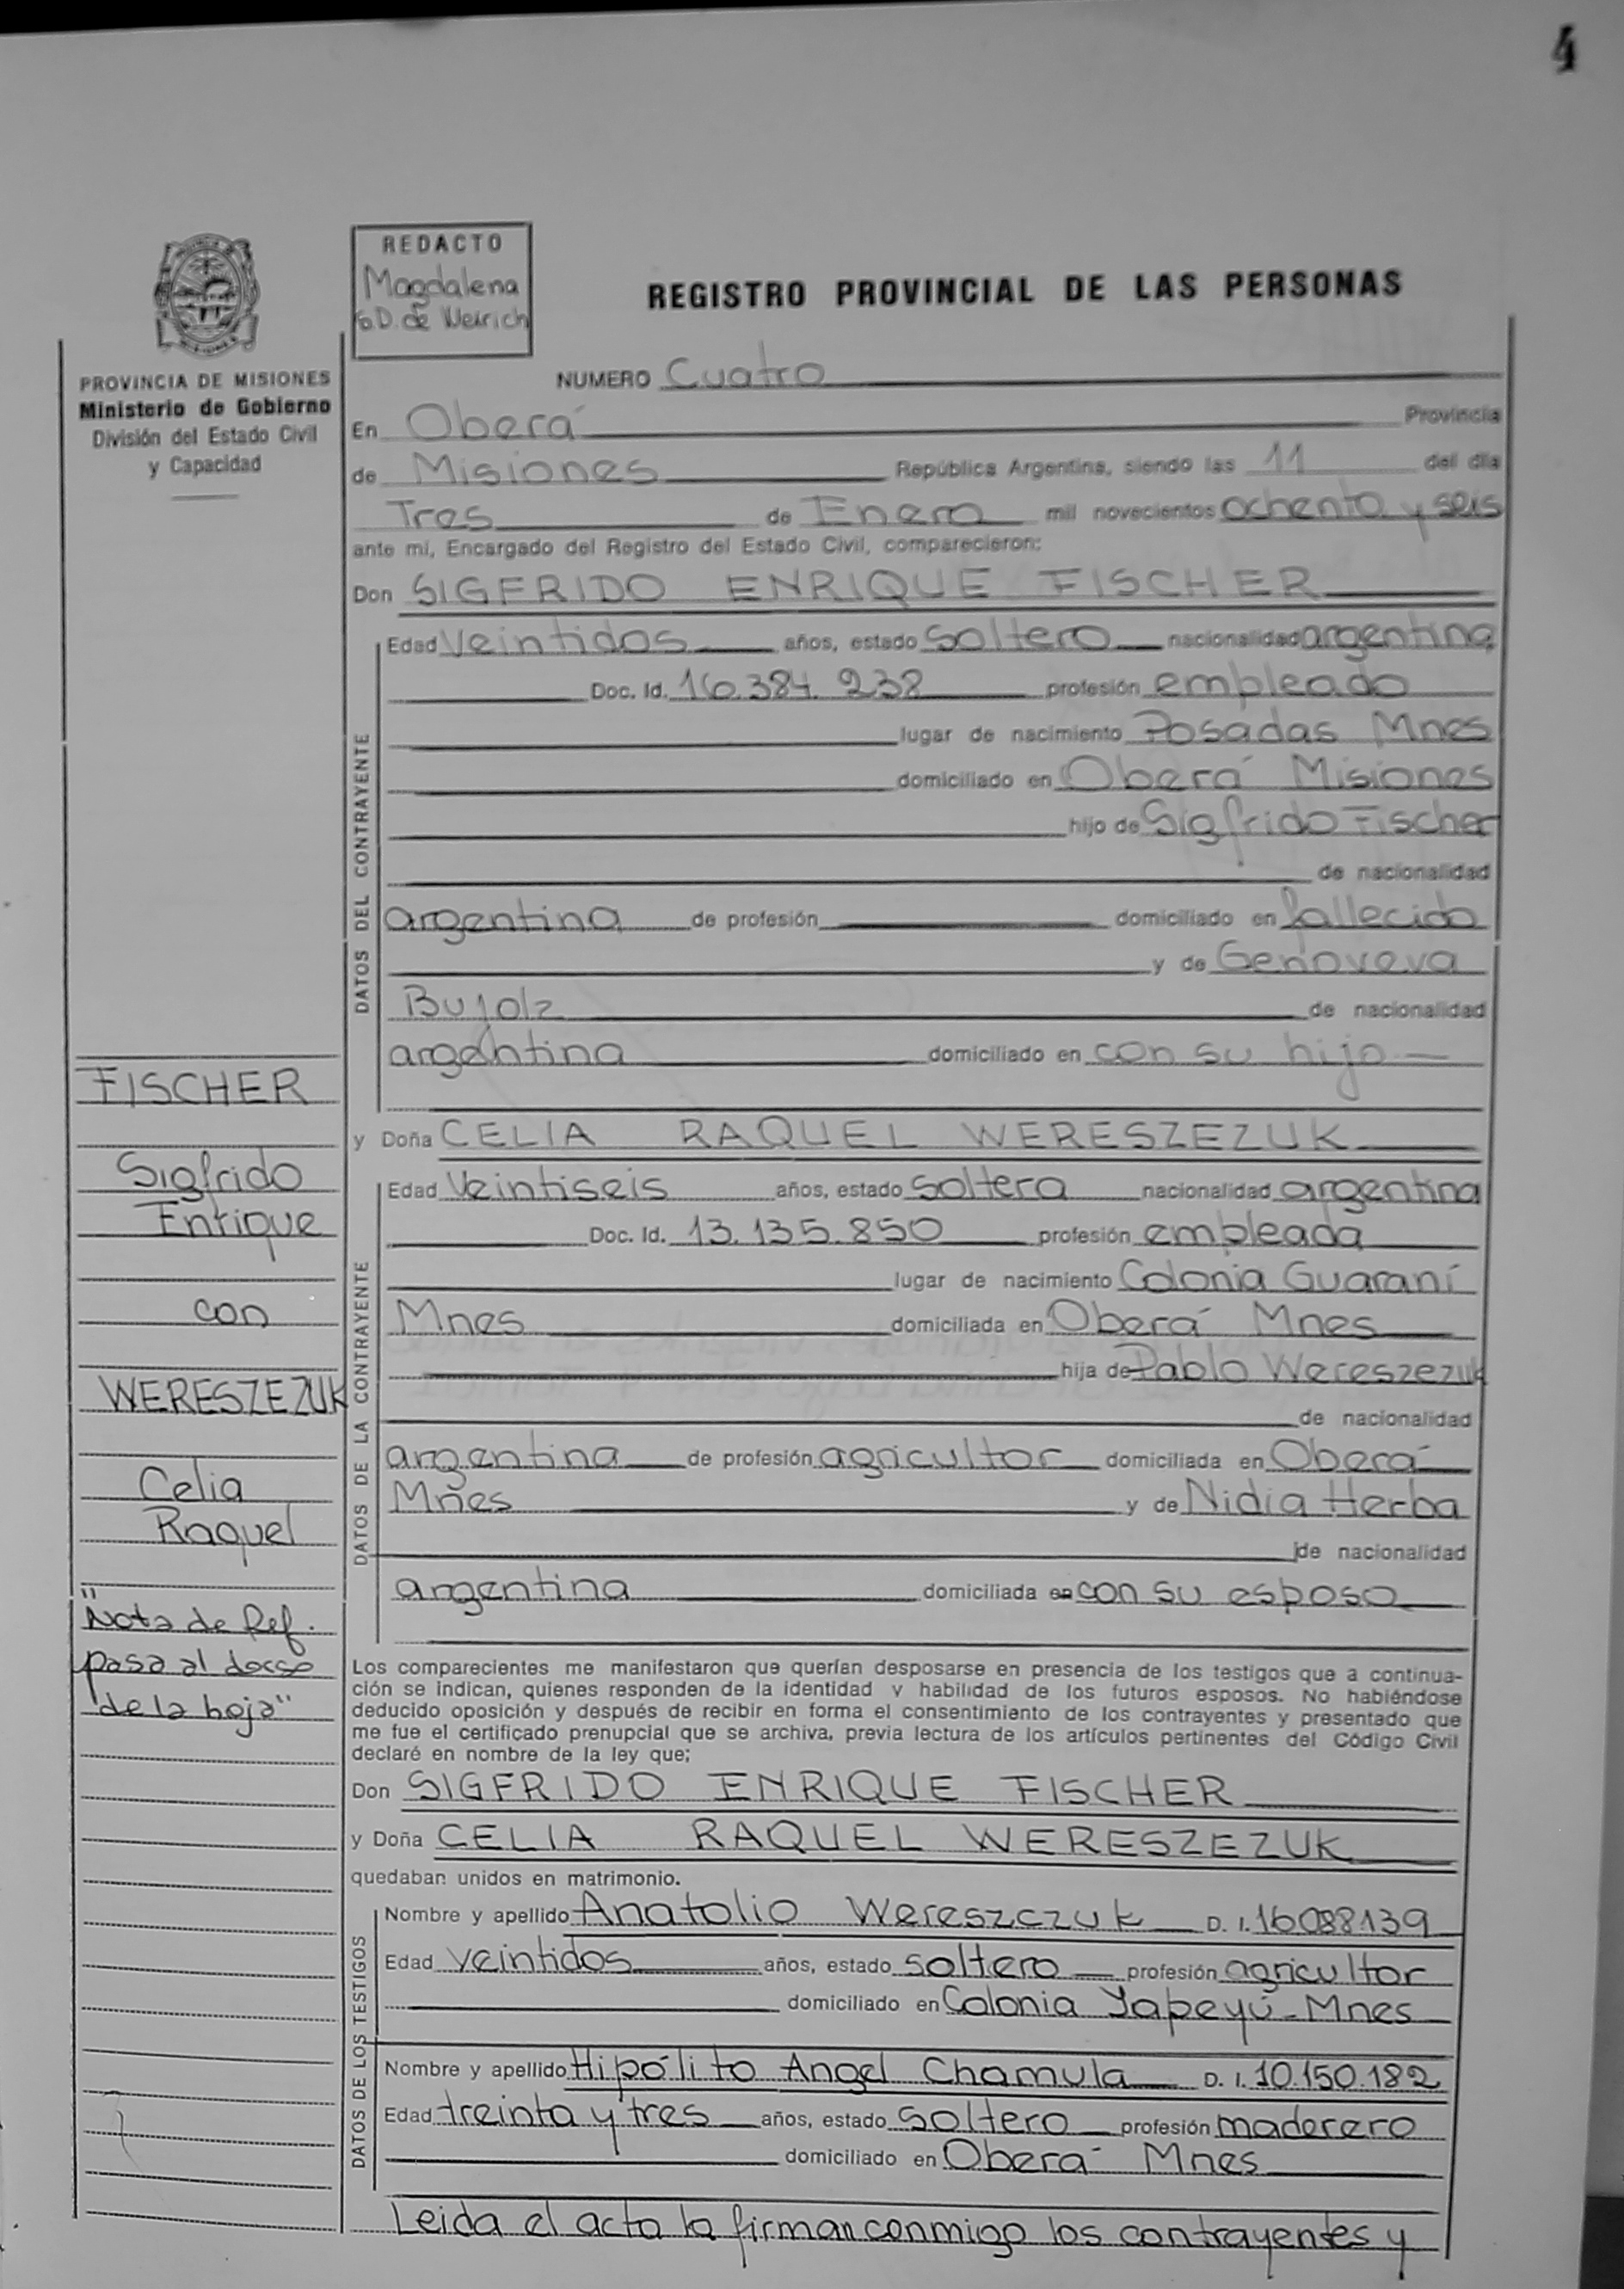 4
REDACTO
Magdalena
S.D. de Weirich
REGISTRO PROVINCIAL DE LAS PERSONAS
PROVINCIA DE MISIONES
Ministerio de Gobierno
División del Estado Civil
y Capacidad
NUMERO Cuatro
En Oberá Provincia
de Misiones República Argentina, siendo las 11 del día
Tres de Enero mil novecientos ochenta y seis
ante mí, Encargado del Registro del Estado Civil, comparecieron:
Don SIGFRIDO ENRIQUE FISCHER
DATOS DEL CONTRAYENTE
Edad Veintidos años, estado Soltero nacionalidad argentina
Doc. Id. 16.384.238 profesión empleado
lugar de nacimiento Posadas Mnes
domiciliado en Oberá Misiones
hijo de Sigfrido Fischer
de nacionalidad
argentina de profesión domiciliado en fallecido
y de Genoveva
Bujolz de nacionalidad
argentina domiciliado en con su hijo
y Doña CELIA RAQUEL WERESZEZUK
DATOS DE LA CONTRAYENTE
Edad Veintiseis años, estado Soltera nacionalidad argentina
Doc. Id. 13.135.850 profesión empleada
lugar de nacimiento Colonia Guaraní
Mnes domiciliada en Oberá Mnes
hija de Pablo Wereszezuk
de nacionalidad
argentina de profesión agricultor domiciliada en Oberá
Mñes y de Nidia Herba
de nacionalidad
argentina domiciliada en con su esposo
FISCHER
Sigfrido
Enrique
con
WERESZEZUK
Celia
Raquel
"Nota de Ref.
pasa al dorso
de la hoja"
Los comparecientes me manifestaron que querían desposarse en presencia de los testigos que a continua-
ción se indican, quienes responden de la identidad y habilidad de los futuros esposos. No habiéndose
deducido oposición y después de recibir en forma el consentimiento de los contrayentes y presentado que
me fue el certificado prenupcial que se archiva, previa lectura de los artículos pertinentes del Código Civil
declaré en nombre de la ley que;
Don SIGFRIDO ENRIQUE FISCHER
y Doña CELIA RAQUEL WERESZEZUK
quedaban unidos en matrimonio.
DATOS DE LOS TESTIGOS
Nombre y apellido Anatolio Wereszczuk D. I. 16088139
Edad veintidos años, estado soltero profesión agricultor
domiciliado en Colonia Yapeyú - Mnes
Nombre y apellido Hipólito Angel Chamula D. I. 10.150.182
Edad treinta y tres años, estado soltero profesión maderero
domiciliado en Oberá Mnes
Leida el acta la firman conmigo los contrayentes y